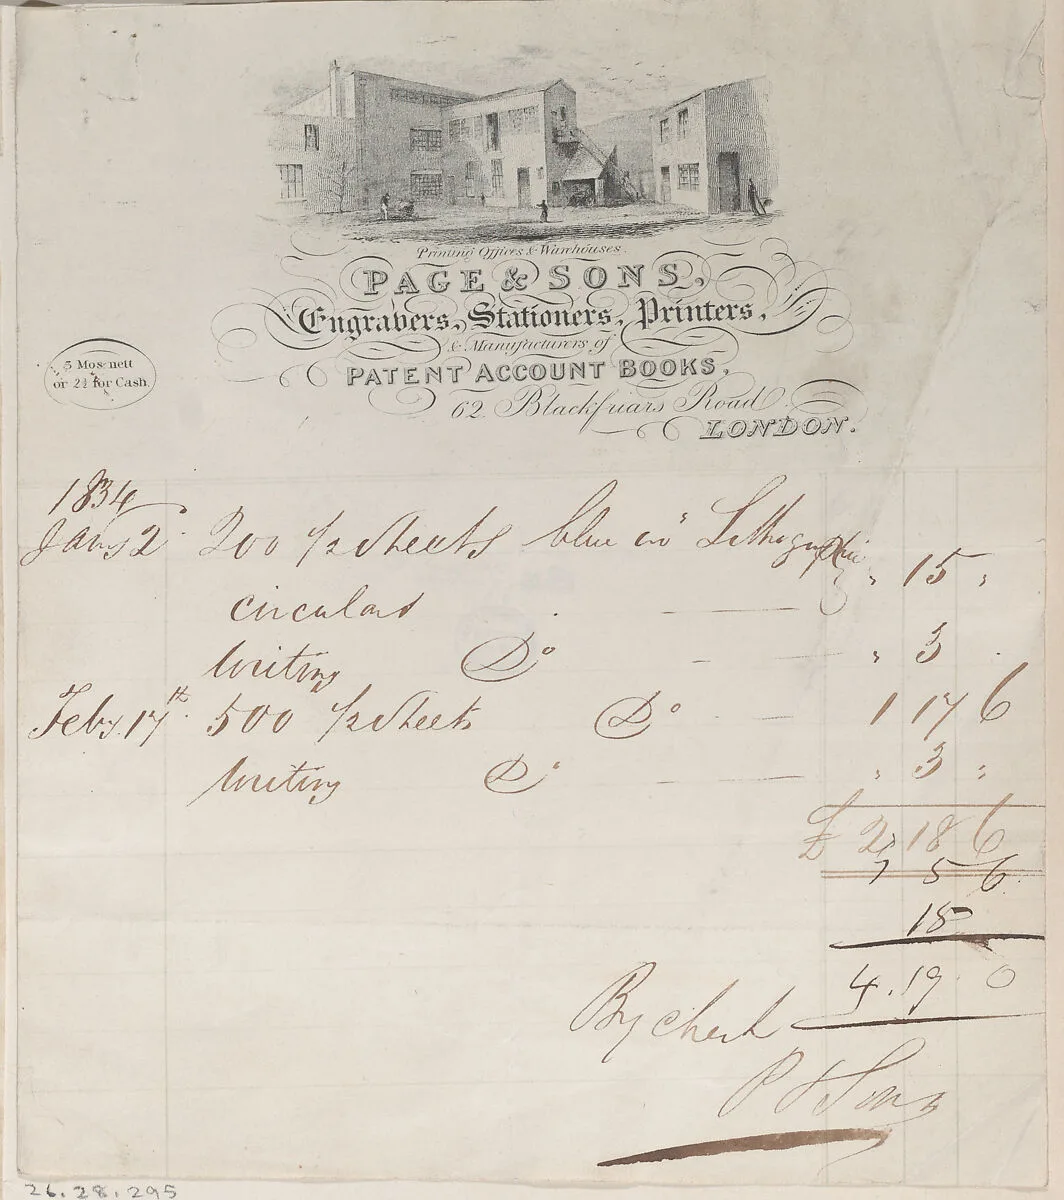 Printing Offices & Warehouses.
PAGE & SONS,
Engravers, Stationers, Printers,
& Manufacturers of
PATENT ACCOUNT BOOKS,
62 Blackfriars Road
LONDON.
3 Mos nett
or 2½ for Cash.
1834
Jany 2 200 ½ sheets blue wo Lithographic
circulars " 15 "
Writing Do " 3 "
Feby 17th 500 ½ sheets Do 1 17 6
Writing Do " 3 "
£ 2, 18 6
5 6
15
4. 19. 0
By check
P & Sons
26.28.295